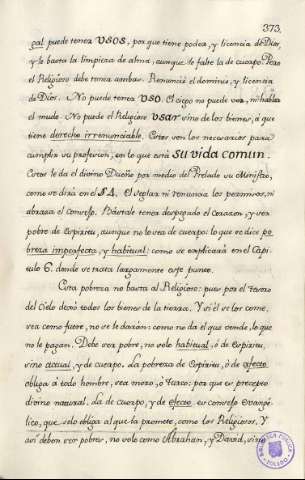 373.
gal puede tener USOS, por que tiene poder, y licencia de Dios,
y le basta la limpieza de alma, aunque le falte la de cuerpo. Pero
el Religioso debe tener ambas. Renunció el dominio, y licencia
de Dios. No puede tener USO. El ciego no puede ver, ni hablar
el mudo. No puede el Religioso USAR sino de los bienes, á que
tiene derecho irrenunciable. Estos son los necesarios para
cumplir su profesion, en lo que está SU vida comun.
Estos le da el divino Dueño por medio del Prelado su Ministro,
como se dirá en el § 4. El seglar ni renuncia los permisos, ni
abraza el consejo. Bástale tener despegado el corazon, y ser
pobre de espiritu, aunque no lo sea de cuerpo: lo que se dice po
breza imperfecta, y habitual: como se explicará en el Capi
tulo 6. donde se trata largamente este punto.
Esta pobreza no basta al Religioso: pues por el tesoro
del Cielo dexó todos los bienes de la tierra. Y si él se los come,
sea como fuere, no se le darán: como no da el que vende, lo que
no le pagan. Debe ser pobre, no solo habitual, ó de espiritu,
sino actual, y de cuerpo. La pobreza de espiritu, ó de afecto
obliga á todo hombre, sea moro, ó Turco: por que es precepto
divino natural. La de cuerpo, y de efecto, es consejo evangé-
lico, que solo obliga al que la promete, como los Religiosos. Y
asi deben ser pobres, no solo como Abrahan, y David, sino
BIBLIOTECA PUBLICA
TOLEDO